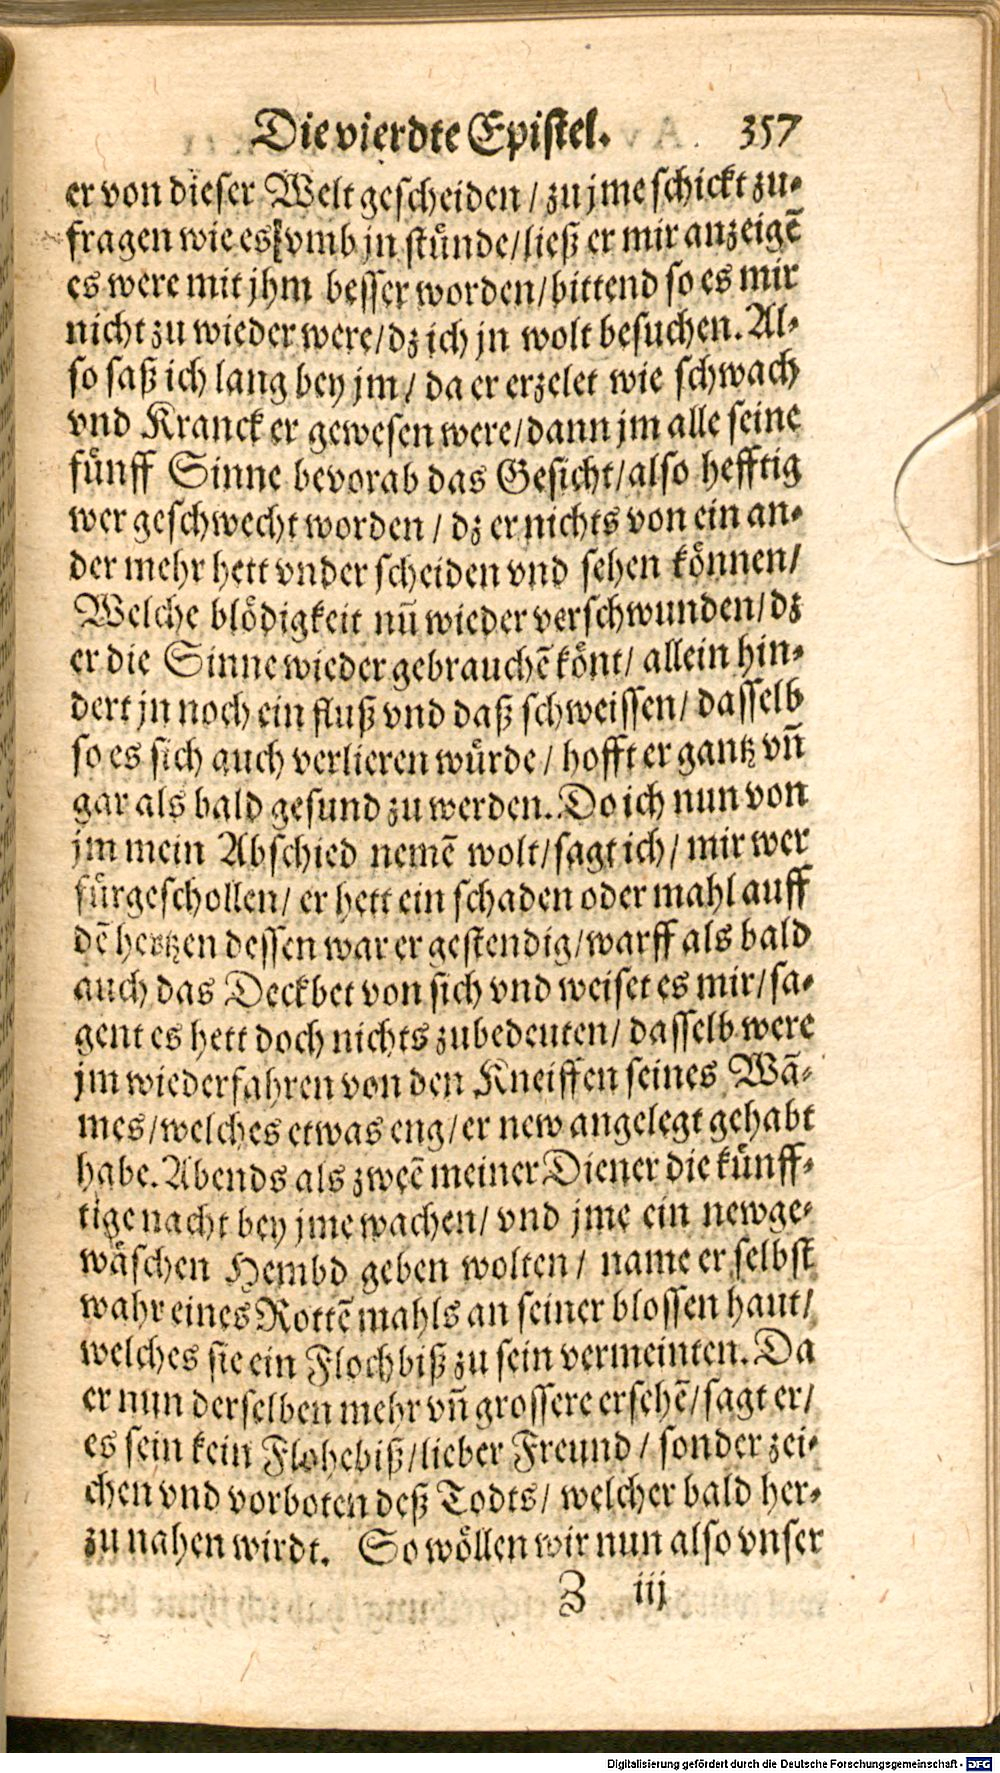 Die vierdte Epistel. 357
er von dieser Welt gescheiden / zu jme schickt zu-
fragen wie es vmb jn stünde/ließ er mir anzeigē
es were mit jhm besser worden/bittend so es mir
nicht zu wieder were/dz ich jn wolt besuchen. Al-
so saß ich lang bey jm / da er erzelet wie schwach
vnd Kranck er gewesen were/dann jm alle seine
fünff Sinne bevorab das Gesicht/also hefftig
wer geschwecht worden / dz er nichts von ein an-
der mehr hett vnder scheiden vnd sehen können/
Welche blödigkeit nū wieder verschwunden/dz
er die Sinne wieder gebrauchē könt/ allein hin-
dert jn noch ein fluß vnd daß schweissen/ dasselb
so es sich auch verlieren würde / hofft er gantz vñ
gar als bald gesund zu werden. Do ich nun von
jm mein Abschied nemē wolt/sagt ich / mir wer
fürgeschollen/ er hett ein schaden oder mahl auff
dē hertzen dessen war er gestendig/warff als bald
auch das Deckbet von sich vnd weiset es mir/sa-
gent es hett doch nichts zubedeuten/ dasselb were
jm wiederfahren von den Kneiffen seines Wā-
mes/welches etwas eng/er new angelegt gehabt
habe. Abends als zweē meiner Diener die künff-
tige nacht bey jme wachen/ vnd jme ein newge-
wäschen Hembd geben wolten / name er selbst
wahr eines Rottē mahls an seiner blossen haut/
welches sie ein Flochbiß zu sein vermeinten. Da
er nun derselben mehr vñ grossere ersehē/sagt er/
es sein kein Flohebiß/lieber Freund / sonder zei-
chen vnd vorboten deß Todts/ welcher bald her-
zu nahen wirdt. So wöllen wir nun also vnser
Z iij
Digitalisierung gefördert durch die Deutsche Forschungsgemeinschaft - DFG